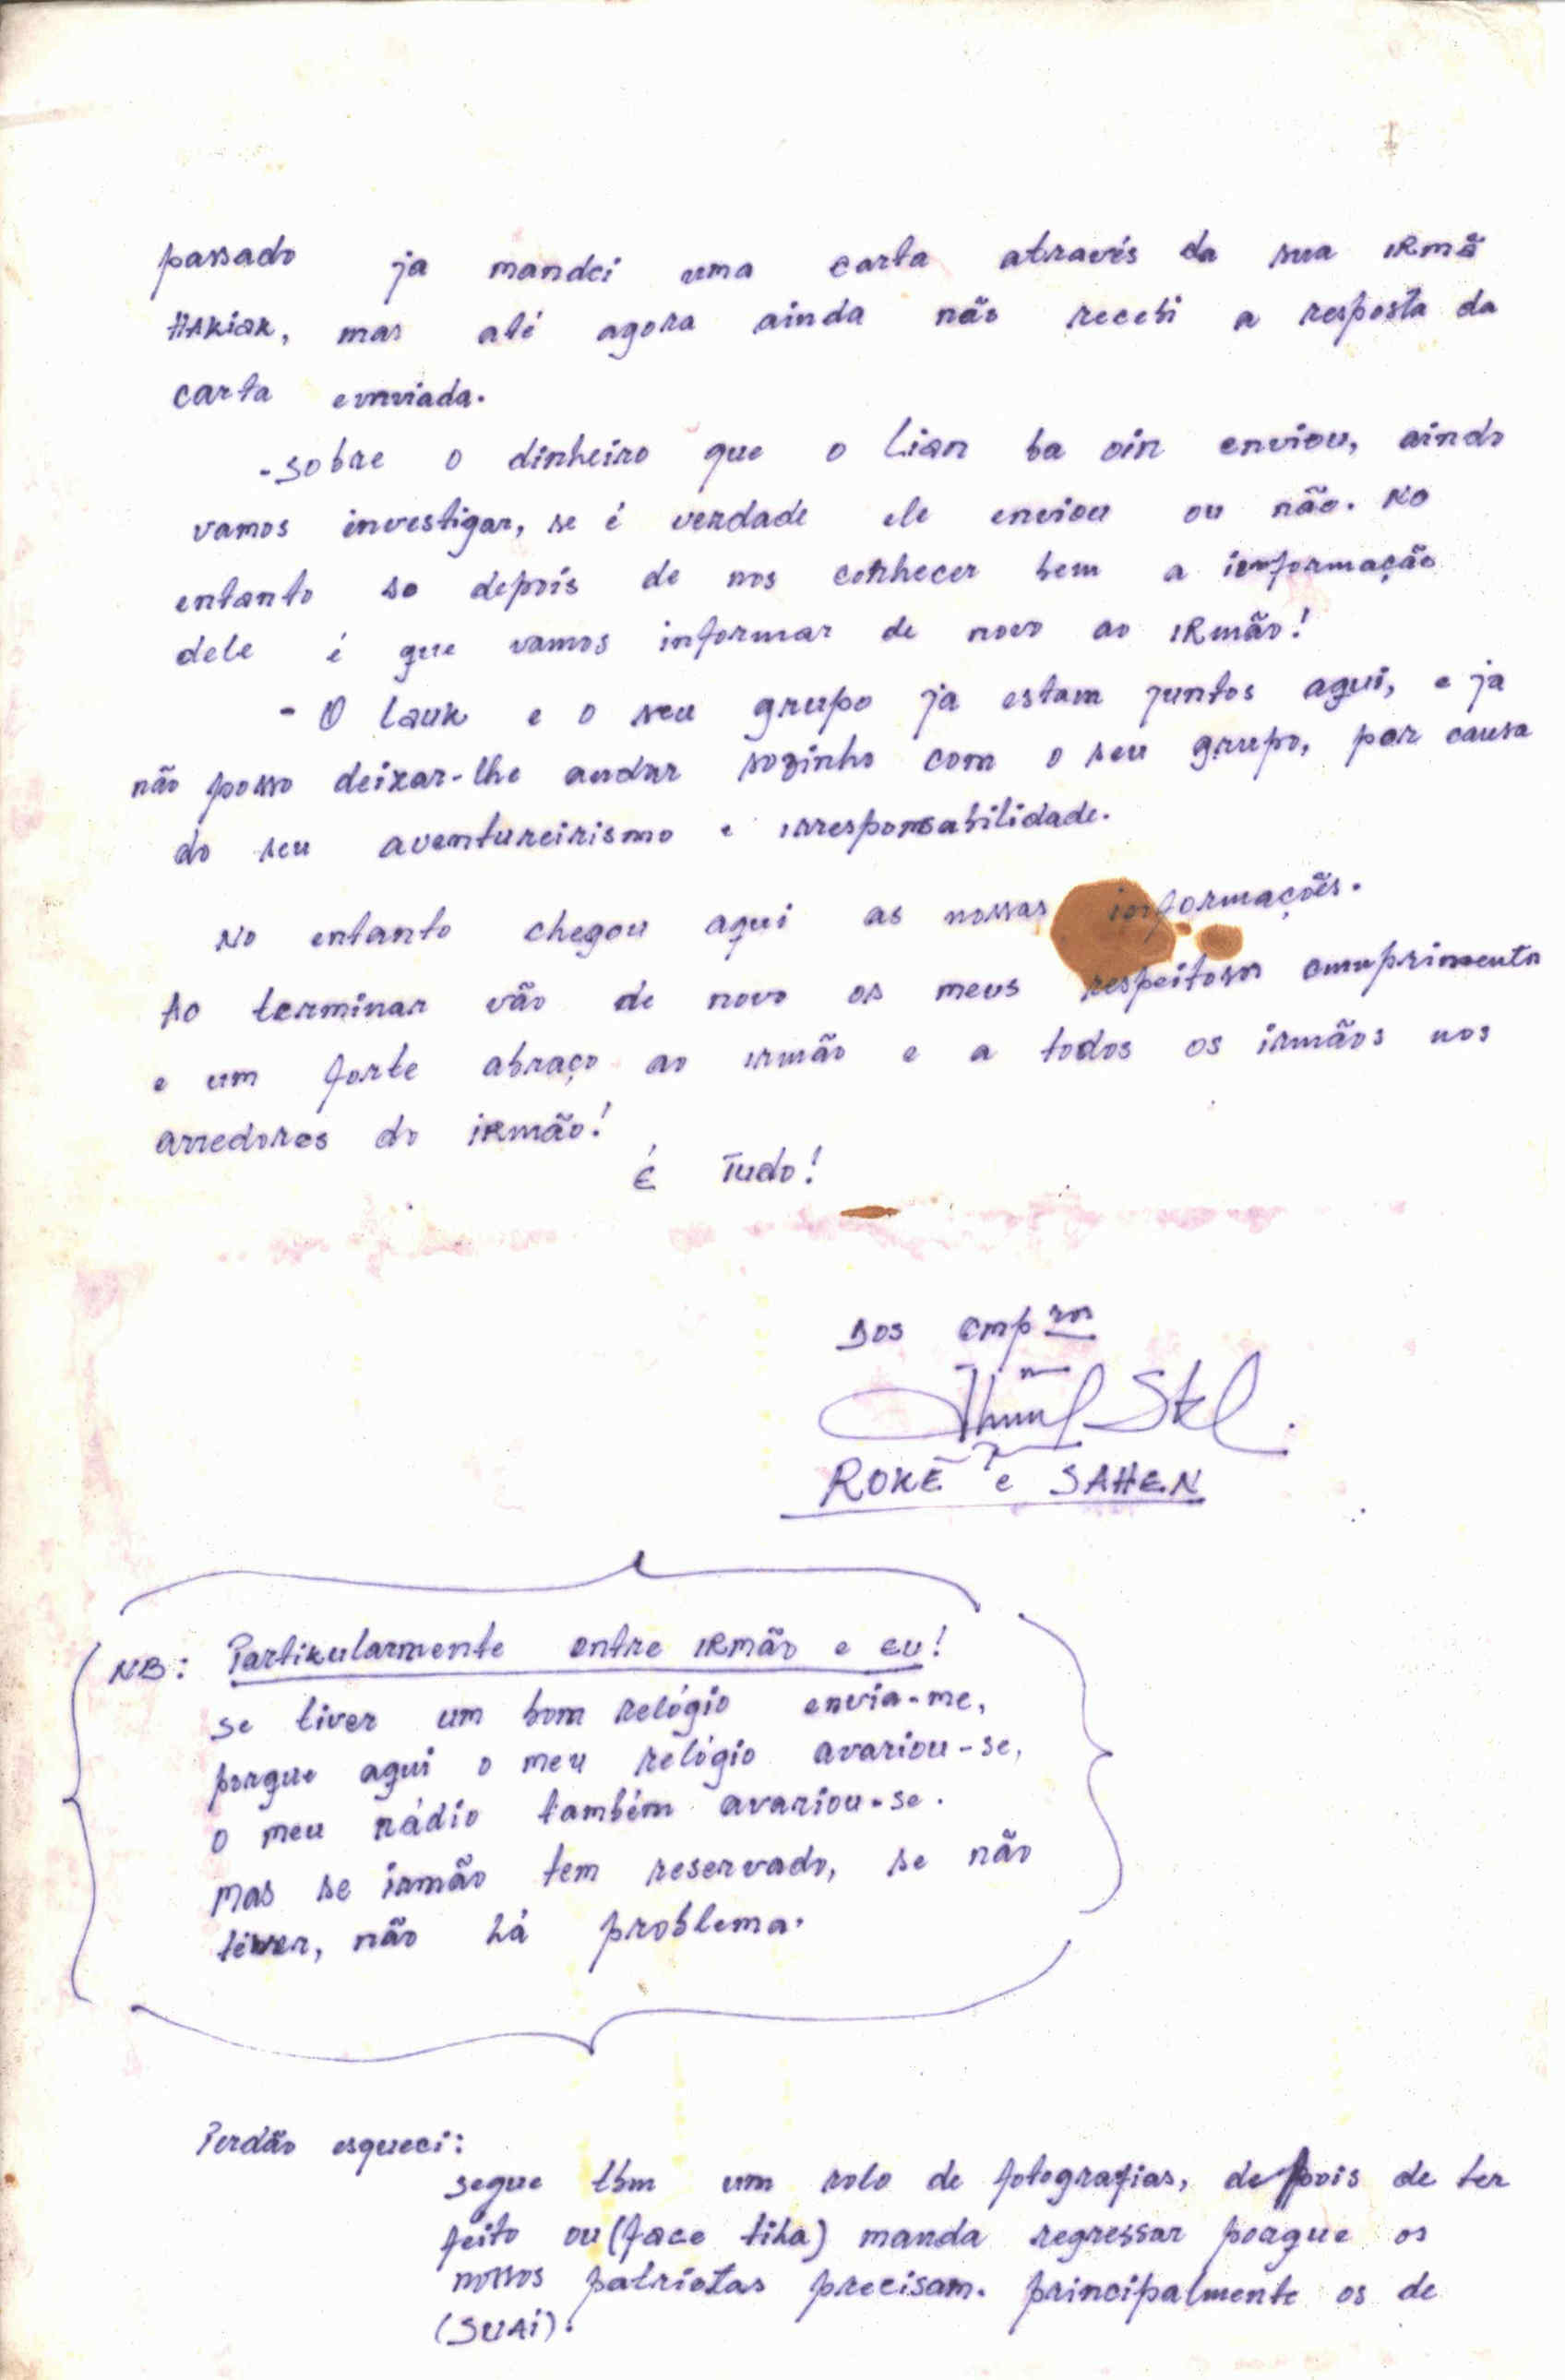 passado ja mandei uma carta através da sua IRmã
HAKiAK, mas até agora ainda não recebi a resposta da
carta enviada.
-sobre o dinheiro que o Lian ba oin enviou, ainda
vamos investigar, se é verdade ele enviou ou não. NO
entanto so depois de nos conhecer bem a informação
dele é que vamos informar de novo ao IRmão!
- O Lauk e o seu grupo ja estam juntos aqui, e ja
não posso deixar-lhe andar sozinho com o seu grupo, por causa
do seu aventureirismo e irresponsabilidade.
No entanto chegou aqui as nossas informações.
Ao terminar vão de novo os meus respeitosos cumprimentos
e um forte abraço ao irmão e a todos os irmãos nos
arredores do iRmão!
É Tudo!
Dos cmpros
ROKÉ e SAHEN
NB: Partikularmente entre IRmão e eu!
se tiver um bom relógio envia-me,
porque aqui o meu relógio avariou-se,
o meu rádio também avariou-se.
mas se irmão tem reservado, se não
tiver, não há problema.
Perdão esqueci:
segue tbm um rolo de fotografias, depois de ter
feito ou (face tiha) manda regressar porque os
nossos patriotas precisam. principalmente os de
(SUAi).